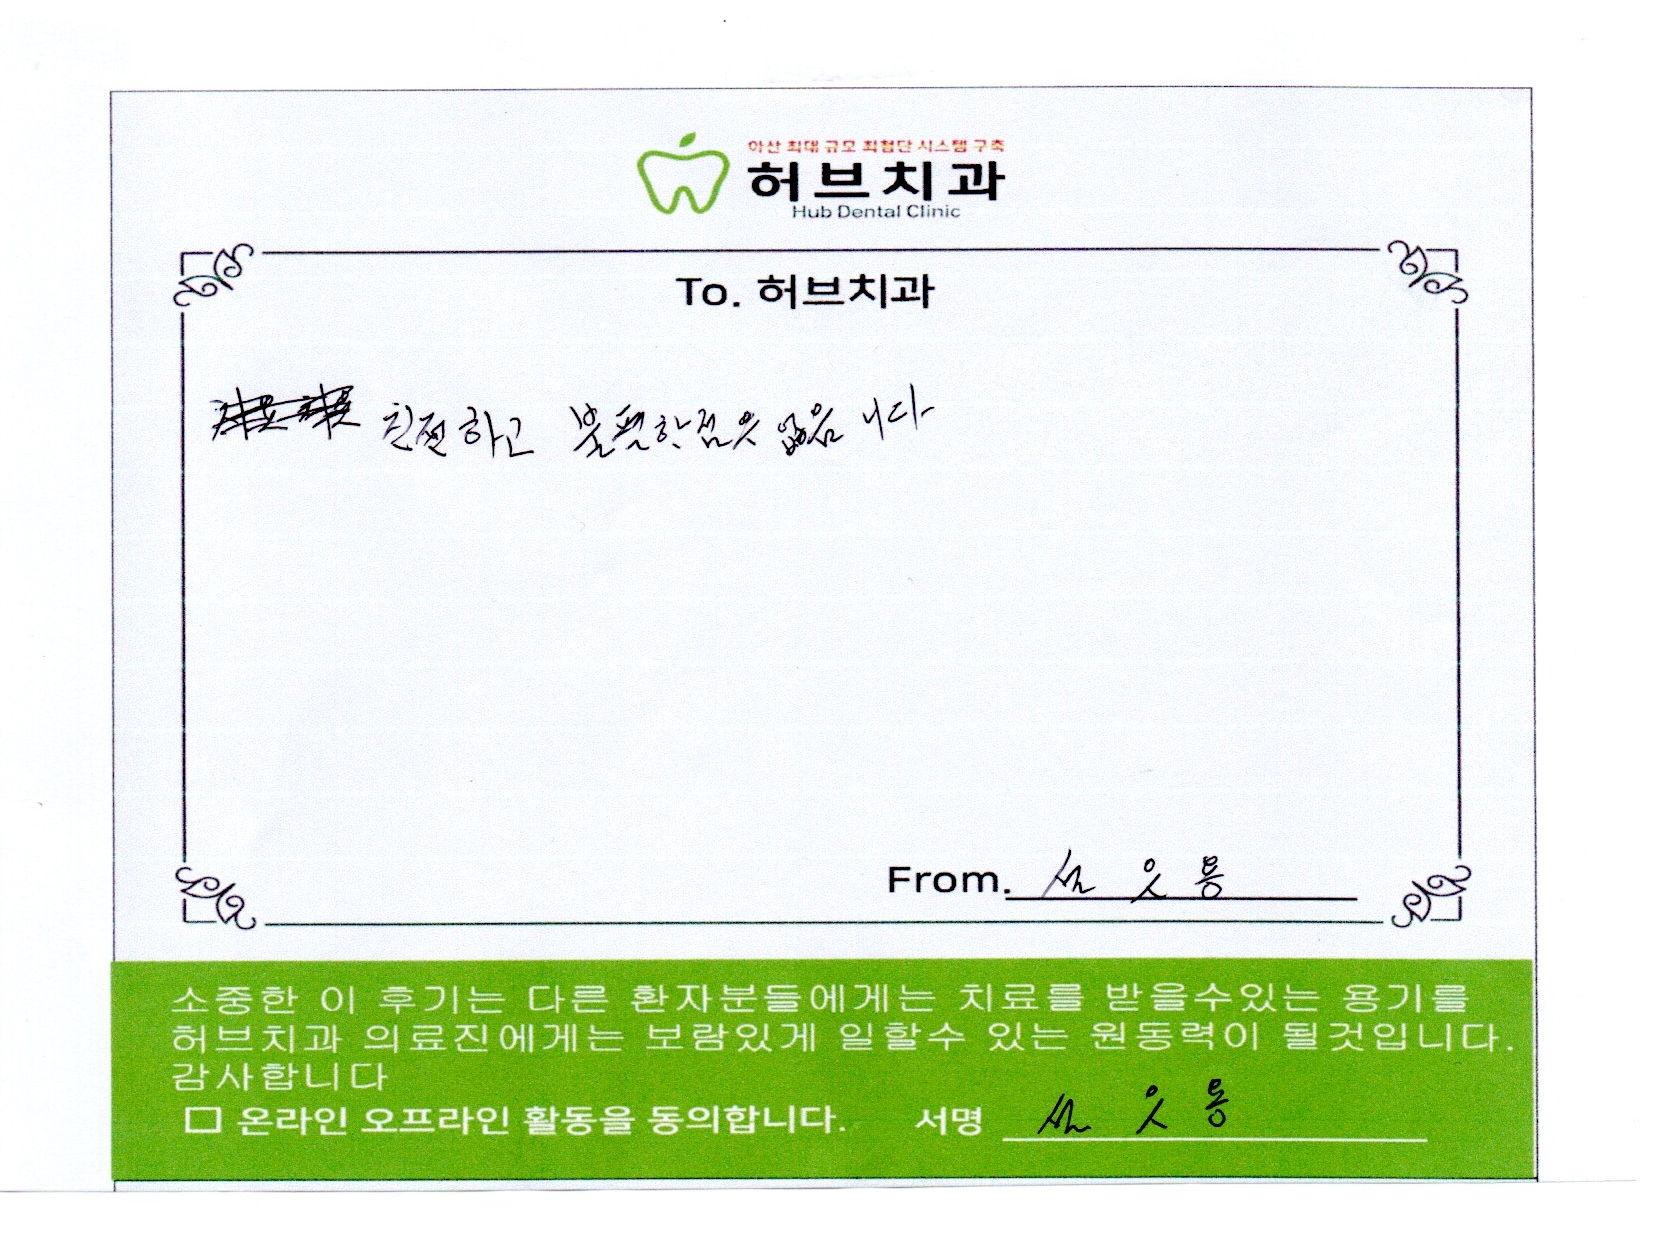 아산 최대 규모 최첨단 시스템 구축
허브치과
Hub Dental Clinic
To. 허브치과
친절하고 불편한점은 없읍니다
From.
소중한 이 후기는 다른 환자분들에게는 치료를 받을수있는 용기를
허브치과 의료진에게는 보람있게 일할수 있는 원동력이 될것입니다.
감사합니다
온라인 오프라인 활동을 동의합니다. 서명